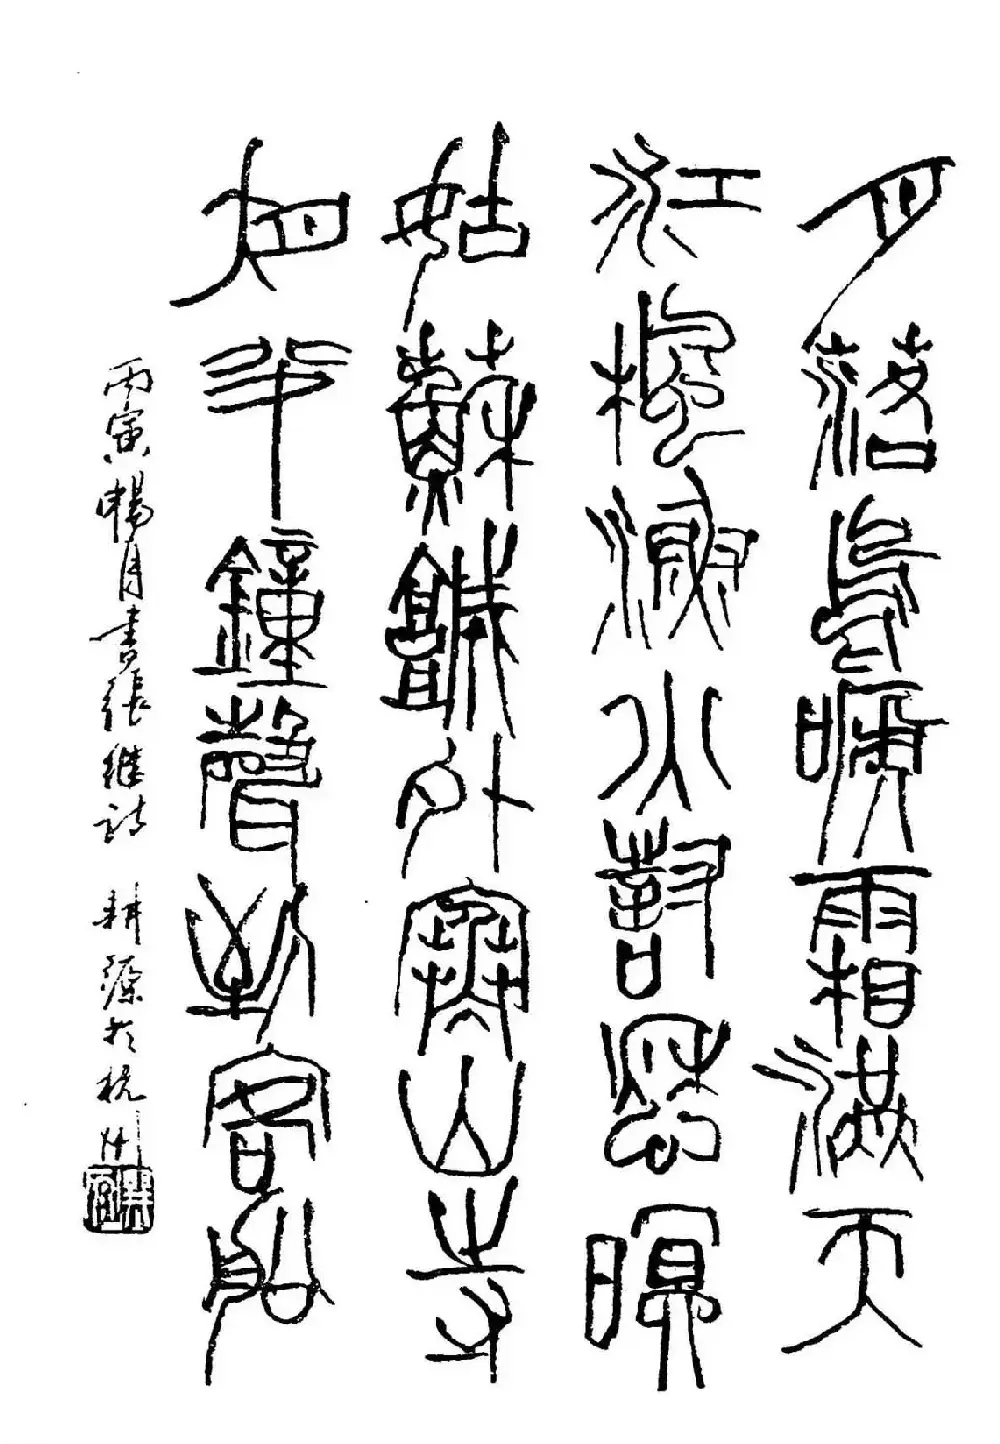 月落烏嗁霜滿天
江楓漁火對愁瞑
姑蘇城外寒山寺
夜半鐘聲到客船
丙寅暢月書張継詩 耕源於杭州